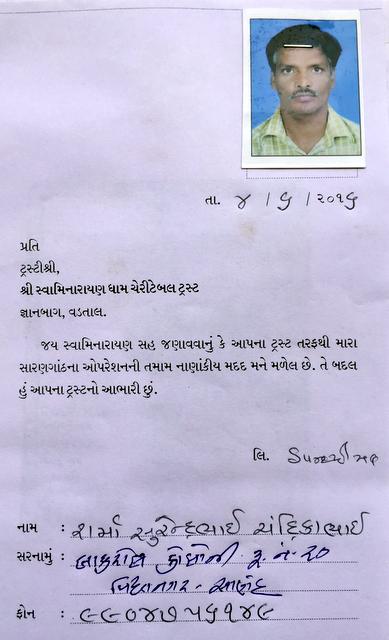 તા. ૪ / ૬ / ૨૦૧૬
પ્રતિ
ટ્રસ્ટીશ્રી,
શ્રી સ્વામિનારાયણ ધામ ચેરીટેબલ ટ્રસ્ટ
જ્ઞાનબાગ, વડતાલ.
જય સ્વામિનારાયણ સહ જણાવવાનું કે આપના ટ્રસ્ટ તરફથી મારા
સારણગાંઠના ઓપરેશનની તમામ નાણાંકીય મદદ મને મળેલ છે. તે બદલ
હું આપના ટ્રસ્ટનો આભારી છું.
લિ.
નામ : શર્મા સુરેન્દ્રભાઈ ચંદ્રિકાભાઈ
સરનામું : કોલોની રૂ. નં ૨૦
વિદ્યાનગર - આણંદ
ફોન : ૯૯૦૪૭૫૬૧૪૯